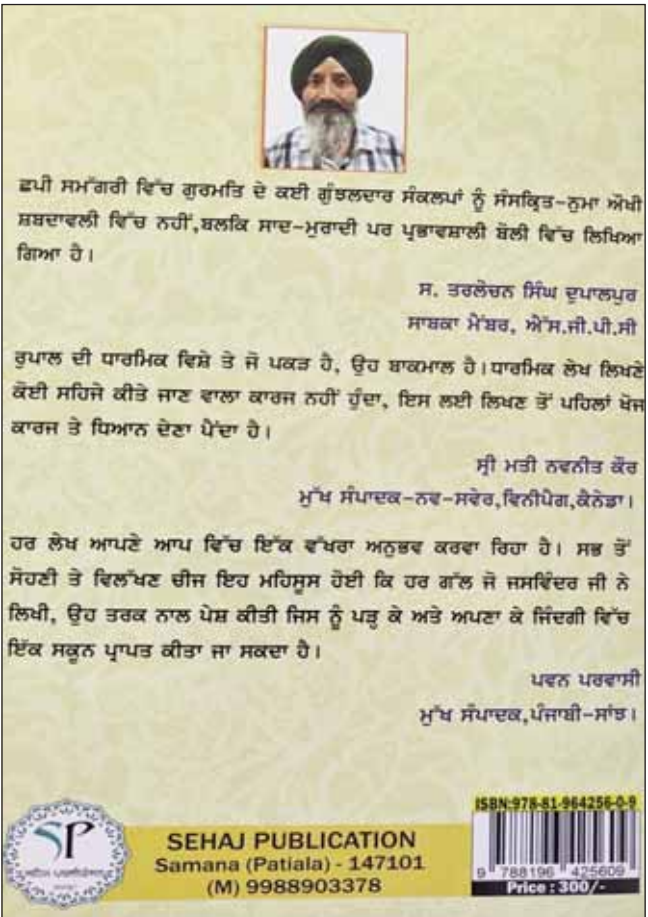 ਛਪੀ ਸਮੱਗਰੀ ਵਿੱਚ ਗੁਰਮਤਿ ਦੇ ਕਈ ਗੁੰਝਲਦਾਰ ਸੰਕਲਪਾਂ ਨੂੰ ਸੰਸਕ੍ਰਿਤ-ਨੁਮਾ ਔਖੀ
ਸ਼ਬਦਾਵਲੀ ਵਿੱਚ ਨਹੀਂ,ਬਲਕਿ ਸਾਦ-ਮੁਰਾਦੀ ਪਰ ਪ੍ਰਭਾਵਸ਼ਾਲੀ ਬੋਲੀ ਵਿੱਚ ਲਿਖਿਆ
ਗਿਆ ਹੈ।
ਸ. ਤਰਲੋਚਨ ਸਿੰਘ ਦੁਪਾਲਪੁਰ
ਸਾਬਕਾ ਮੈਂਬਰ, ਐੱਸ.ਜੀ.ਪੀ.ਸੀ
ਰੁਪਾਲ ਦੀ ਧਾਰਮਿਕ ਵਿਸ਼ੇ ਤੇ ਜੋ ਪਕੜ ਹੈ, ਉਹ ਬਾਕਮਾਲ ਹੈ।ਧਾਰਮਿਕ ਲੇਖ ਲਿਖਣੇ
ਕੋਈ ਸਹਿਜੇ ਕੀਤੇ ਜਾਣ ਵਾਲਾ ਕਾਰਜ ਨਹੀਂ ਹੁੰਦਾ, ਇਸ ਲਈ ਲਿਖਣ ਤੋਂ ਪਹਿਲਾਂ ਖੋਜ
ਕਾਰਜ ਤੇ ਧਿਆਨ ਦੇਣਾ ਪੈਂਦਾ ਹੈ।
ਸ੍ਰੀ ਮਤੀ ਨਵਨੀਤ ਕੌਰ
ਮੁੱਖ ਸੰਪਾਦਕ-ਨਵ-ਸਵੇਰ,ਵਿਨੀਪੈਗ,ਕੈਨੇਡਾ।
ਹਰ ਲੇਖ ਆਪਣੇ ਆਪ ਵਿੱਚ ਇੱਕ ਵੱਖਰਾ ਅਨੁਭਵ ਕਰਵਾ ਰਿਹਾ ਹੈ। ਸਭ ਤੋਂ
ਸੋਹਣੀ ਤੇ ਵਿਲੱਖਣ ਚੀਜ ਇਹ ਮਹਿਸੂਸ ਹੋਈ ਕਿ ਹਰ ਗੱਲ ਜੋ ਜਸਵਿੰਦਰ ਜੀ ਨੇ
ਲਿਖੀ, ਉਹ ਤਰਕ ਨਾਲ ਪੇਸ਼ ਕੀਤੀ ਜਿਸ ਨੂੰ ਪੜ੍ਹ ਕੇ ਅਤੇ ਅਪਣਾ ਕੇ ਜਿੰਦਗੀ ਵਿੱਚ
ਇੱਕ ਸਕੂਨ ਪ੍ਰਾਪਤ ਕੀਤਾ ਜਾ ਸਕਦਾ ਹੈ।
ਪਵਨ ਪਰਵਾਸੀ
ਮੁੱਖ ਸੰਪਾਦਕ,ਪੰਜਾਬੀ-ਸਾਂਝ।
ISBN:978-81-964256-0-9
SP
SEHAJ PUBLICATION
Samana (Patiala) - 147101
(M) 9988903378
9 788196 425609
Price : 300/-